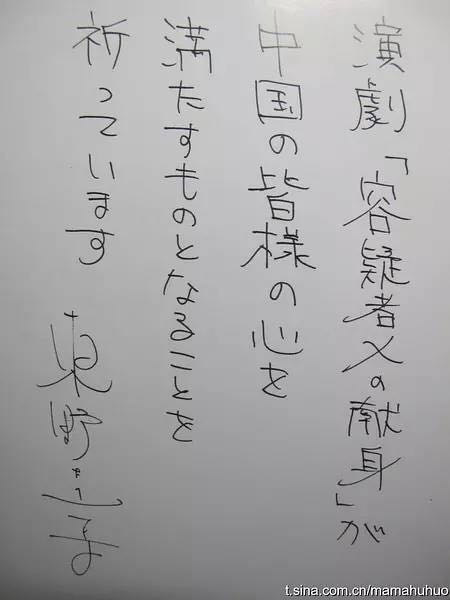 演劇「容疑者Xの献身」が
中国の皆様の心を
満たすものとなることを
祈っています
東野圭吾
t.sina.com.cn/mamahuhuo